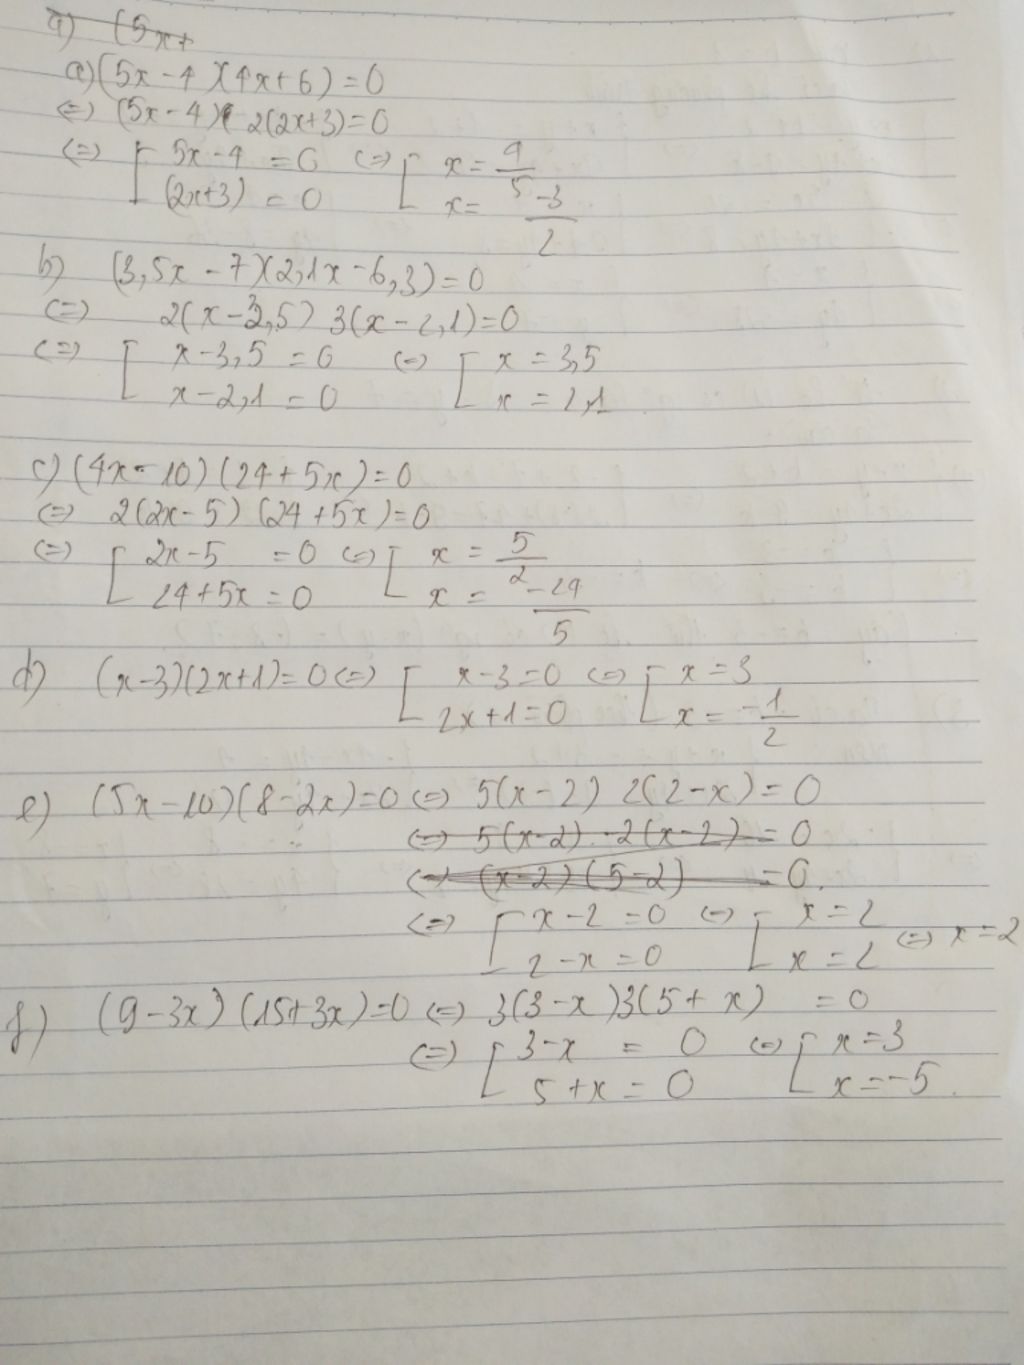 a) (5x+
a) (5x-4)(4x+6)=0
(=) (5x-4)( 2(2x+3)=0
(=) [ 5x-4 = 0 (=) [ x = 4/5
(2x+3) = 0 x = -3/2
b) (3,5x-7)(2,1x-6,3)=0
(=) 2(x-3,5) 3(x-2,1)=0
(=) [ x-3,5 = 0 (=) [ x = 3,5
x-2,1 = 0 x = 2,1
c) (4x-10)(24+5x)=0
(=) 2(2x-5) (24+5x)=0
(=) [ 2x-5 = 0 (=) [ x = 5/2
24+5x = 0 x = -24/5
d) (x-3)(2x+1)=0 (=) [ x-3=0 (=) [ x=3
2x+1=0 x = -1/2
e) (5x-10)(8-2x)=0 (=) 5(x-2) 2(2-x)=0
(=) 5(x-2) -2(x-2) = 0
(=) (x-2)(5-2) = 0.
(=) [ x-2 = 0 (=) [ x=2 (=) x=2
2-x = 0 x=2
f) (9-3x)(15+3x)=0 (=) 3(3-x)3(5+x) = 0
(=) [ 3-x = 0 (=) [ x=3
5+x = 0 x=-5.